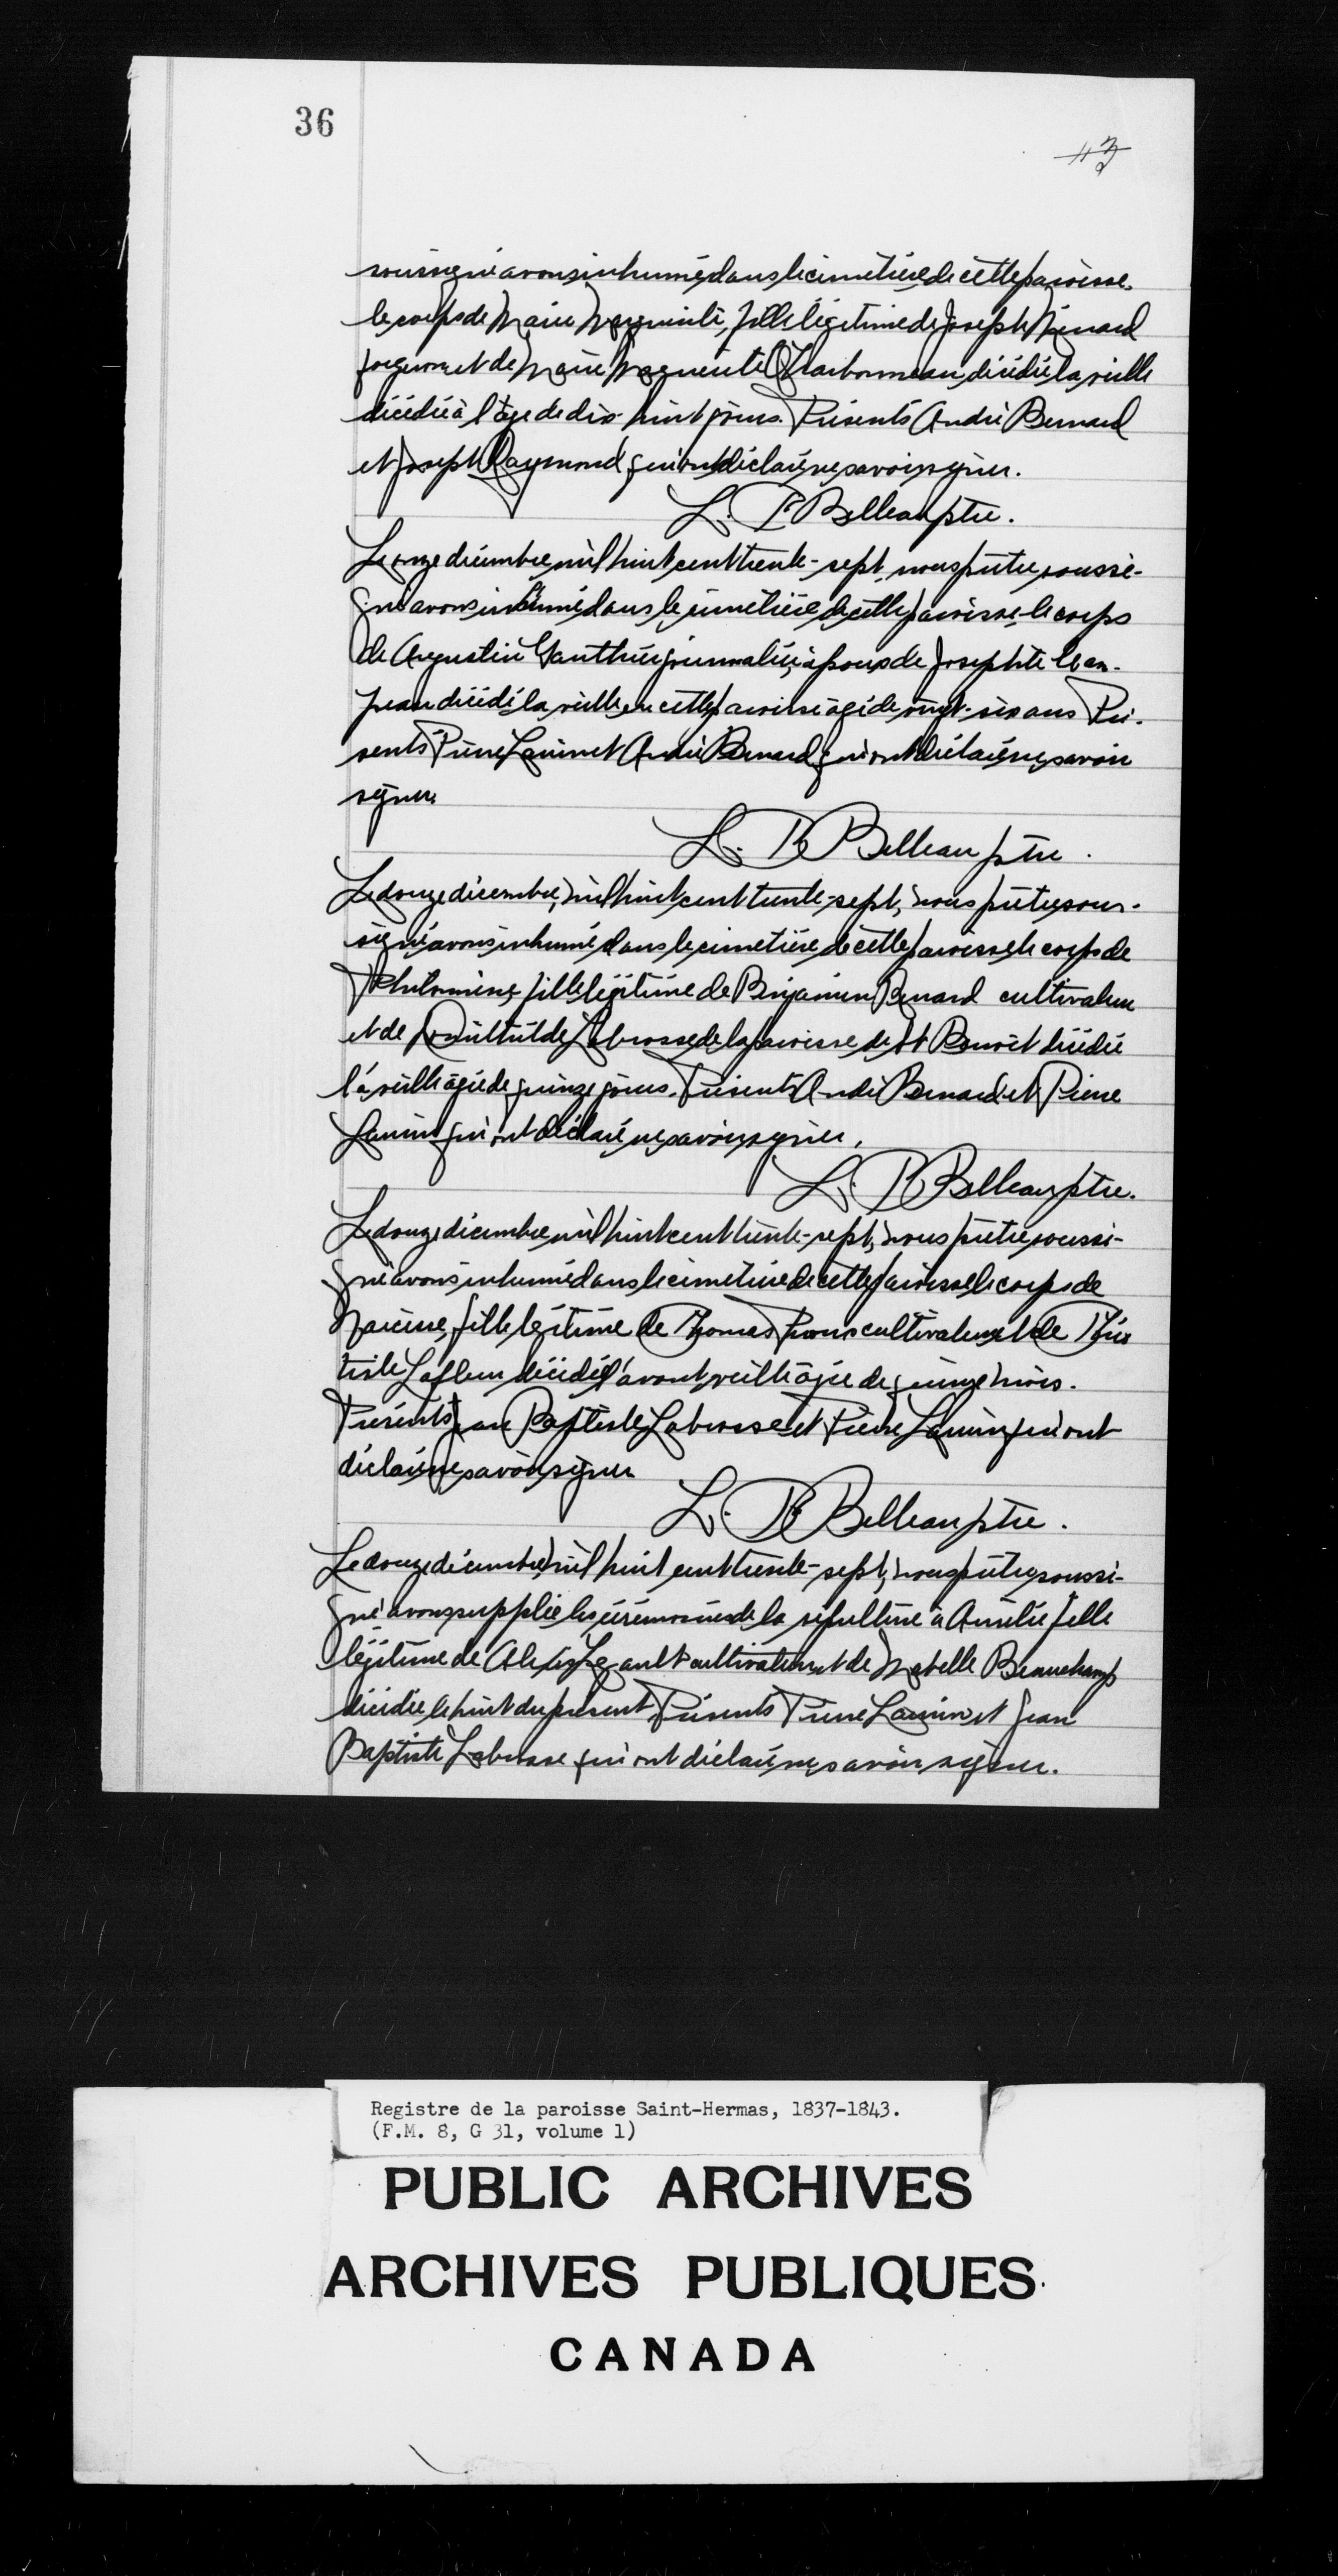 36
soussigné avons inhumé dans le cimetière de cette paroisse
le corps de Marie Marguerite, fille légitime de Joseph Ménard
forgeron et de Marie Marguerite Charbonneau, décédée la veille
décédée à l'âge de dix-huit jours. Présents André Bernard
et Joseph Raymond qui ont déclaré ne savoir signer.
L. P Belleau ptre.
Le onze décembre, mil huit cent trente-sept, nous prêtre soussi-
gné avons inhumé dans le cimetière de cette paroisse le corps
de Augustin Gauthier journalier, époux de Josephte
décédé la veille en cette paroisse âgé de vingt-six ans Pré-
sents Pierre Lanin et André Bernard qui ont déclaré ne savoir
signer.
L. P Belleau ptre.
Le douze décembre, mil huit cent trente-sept, nous prêtre sous-
signé avons inhumé dans le cimetière de cette paroisse le corps de
Philomène, fille légitime de Benjamin Benard cultivateur
et de Labrosse de la paroisse de St Benoit décédée
la veille âgée de quinze jours. Présents André Bernard et Pierre
Lanin qui ont déclaré ne savoir signer.
L. P Belleau ptre.
Le douze décembre mil huit cent trente-sept, nous prêtre soussi-
gné avons inhumé dans le cimetière de cette paroisse le corps de
Narcisse, fille légitime de Thomas cultivateur et de
Lafleur décédé l'avant veille âgée de quinze mois.
Présents Jean Baptiste Labrosse et Pierre Lanin qui ont
déclaré ne savoir signer
L. P Belleau ptre.
Le douze décembre, mil huit cent trente-sept, nous prêtre soussi-
gné avons supplée les cérémonies de la sépulture à Amélie fille
légitime de Alexis Legault cultivateur et de Beauchamp
décédée le huit du présent, Présents Pierre Lanin et Jean
Baptiste Labrosse qui ont déclaré ne savoir signer.
Registre de la paroisse Saint-Hermas, 1837-1843.
(F.M. 8, G 31, volume 1)
PUBLIC ARCHIVES
ARCHIVES PUBLIQUES
CANADA